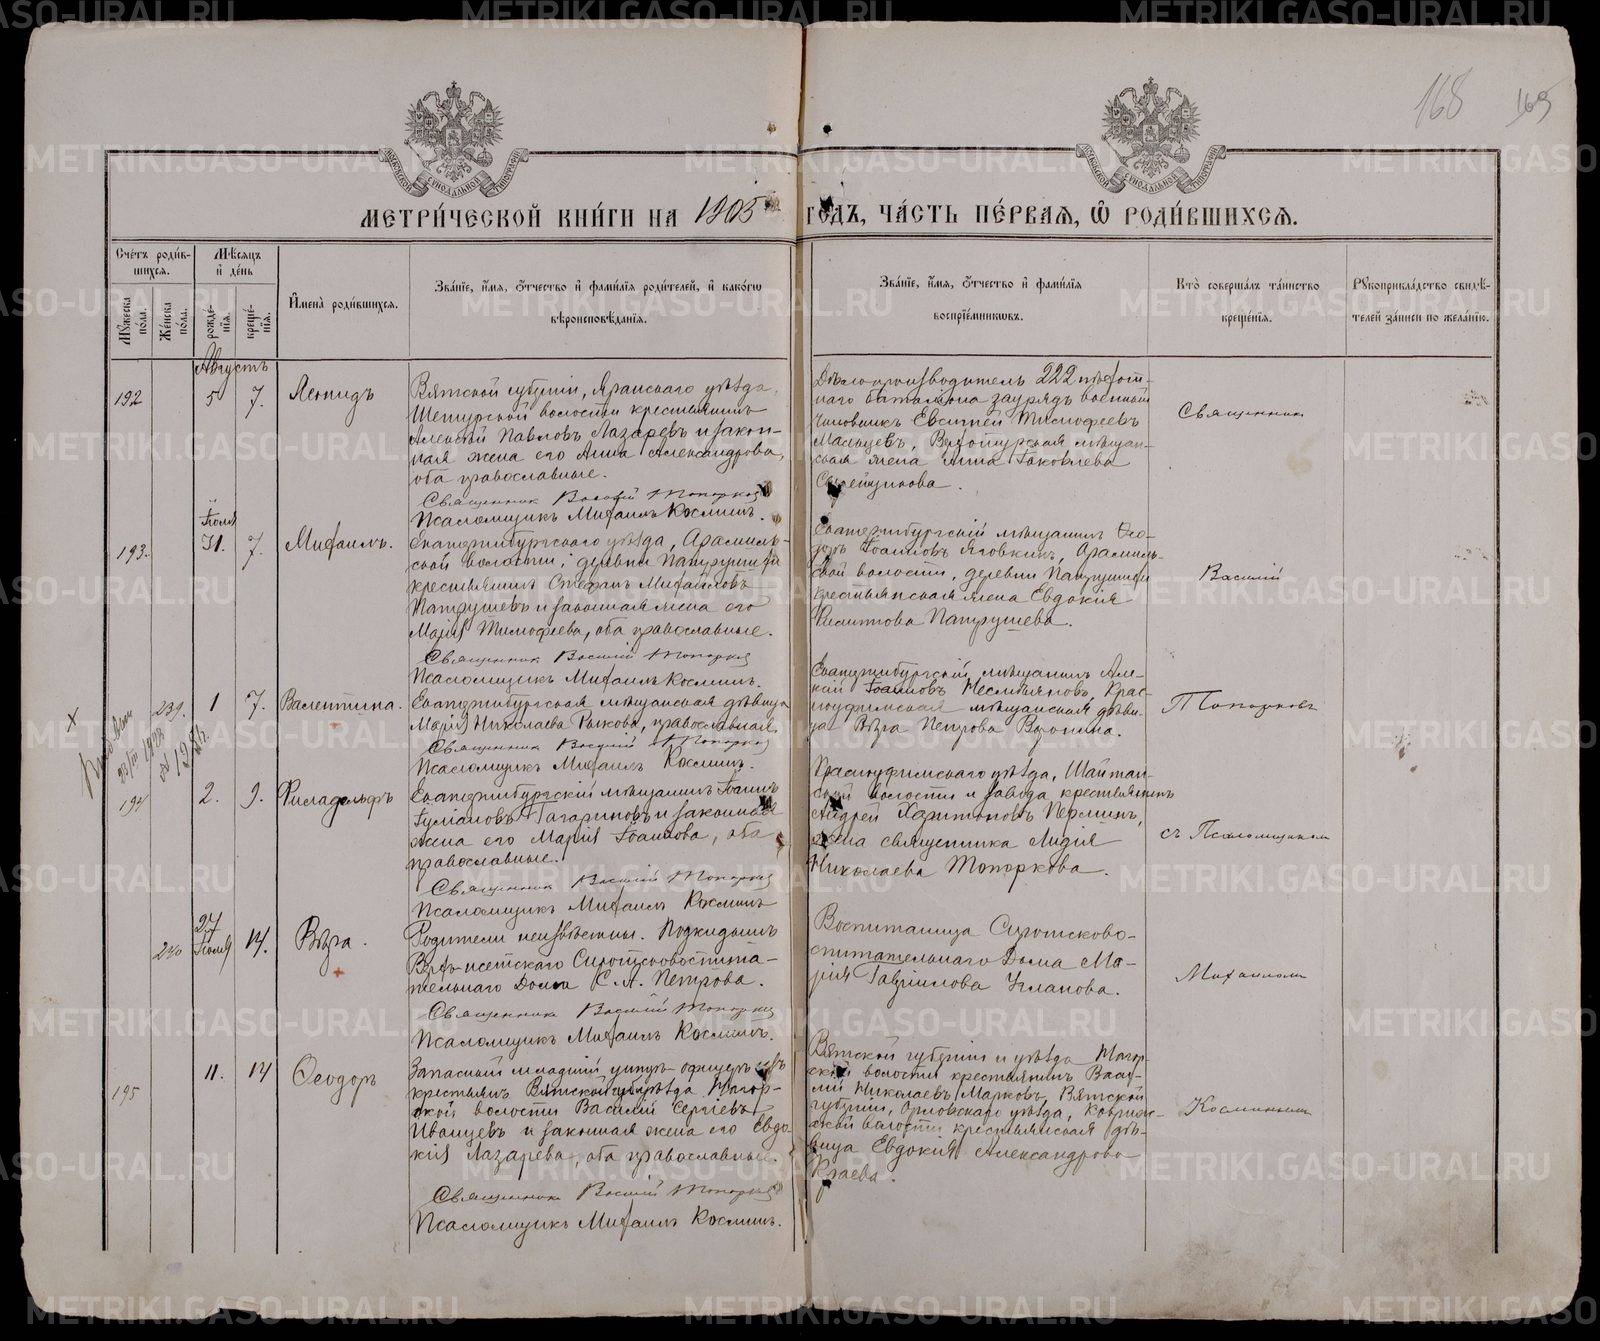 METRIKI.GASO-URAL.RU
168
169
МОСКОВСКОЙ СѴНОДАЛЬНОЙ ТИПОГРАФІИ
МОСКОВСКОЙ СѴНОДАЛЬНОЙ ТИПОГРАФІИ
МЕТРИ́ЧЕСКОЙ КНИ́ГИ НА 1905 ГО́ДЪ, ЧА́СТЬ ПЕ́РВАѦ, Ѽ РОДИ́ВШИХСѦ.
Счетъ роди́вшихсѧ.
Мꙋжеска по́ла.
Же́нска по́ла.
Мѣ́сѧцъ и҆ де́нь
рожде́нїѧ.
креще́нїѧ.
И҆мена̀ роди́вшихсѧ.
Зва́нїе, и҆́мѧ, ѻ҆́тчество и҆ фами́лїѧ роди́телей, и҆ како́гѡ
вѣроисповѣ́данїѧ.
Зва́нїе, и҆́мѧ, ѻ҆́тчество и҆ фами́лїѧ
воспрїе́мникѡвъ.
Кто̀ соверша́лъ та́инство
креще́нїѧ.
Рꙋкоприкла́дство свидѣ́-
телей за́писи по жела́нїю.
Августъ
192
5
7.
Леонидъ
Вятской губерніи, Яранскаго уѣзда,
Шешурской волости крестьянинъ
Алексій Павловъ Лазаревъ и закон-
ная жена его Анна Александрова,
оба православные.
Священникъ Василій Топорковъ
Псаломщикъ Михаилъ Косминъ.
Дѣлопроизводитель 222 пѣхот-
наго баталіона заурядъ военный
чиновникъ Евгеній Тимофеевъ
Мальцевъ, Верхотурская мѣщан-
ская жена Анна Іаковлева
Священникъ
Іюля
31.
193.
7.
Михаилъ.
Екатеринбургскаго уѣзда, Арамиль-
ской волости, деревни Патрушихи
крестьянинъ Стефанъ Михайловъ
Патрушевъ и законная жена его
Марія Тимофеева, оба православные.
Священникъ Василій Топорковъ
Псаломщикъ Михаилъ Косминъ.
Екатеринбургскій мѣщанинъ Ѳео-
доръ Іоанновъ Яговкинъ, Арамиль-
ской волости, деревни Патрушихи
крестьянская жена Евдокія
Патрушева.
Василій
239.
1
7.
Валентина.
Екатеринбургская мѣщанская дѣвица
Марія Николаева Рыкова, православная.
Священникъ Василій Топорковъ
Псаломщикъ Михаилъ Косминъ.
Екатеринбургскій мѣщанинъ Але-
ксій Іоанновъ Несмѣяновъ, Крас-
ноуфимская мѣщанская дѣви-
ца Вѣра Петрова Воронина.
Топорковъ
194
2.
9.
Филадельфъ
Екатеринбургскій мѣщанинъ Іоаннъ
Іуліановъ Гагариновъ и законная
жена его Марія Іоаннова, оба
православные.
Священникъ Василій Топорковъ
Псаломщикъ Михаилъ Косминъ
Красноуфимскаго уѣзда, Шайтан-
ской волости и завода крестьянинъ
Андрей Харитоновъ Перминъ,
жена священника Лидія
Николаева Топоркова.
съ Псаломщикомъ
240
27
Іюля
14.
Вѣра.
Родители неизвѣстны. Подкидышъ
Верхъ-исетскаго Сиротсковоспита-
тельнаго Дома С. А. Петрова.
Священникъ Василій Топорковъ
Псаломщикъ Михаилъ Косминъ.
Воспитаница Сиротсково-
спитательнаго Дома Ма-
рія Гавріилова Угланова.
Михаиломъ
195
11.
14
Ѳеодоръ
Запасный младшій унтеръ-офицеръ изъ
крестьянъ Вятской губ. и уѣзда Шагор-
ской волости Василій Сергіевъ
Иванцевъ и законная жена его Евдо-
кія Лазарева, оба православные.
Священникъ Василій Топорковъ
Псаломщикъ Михаилъ Косминъ.
Вятской губерніи и уѣзда Шагор-
ской волости крестьянинъ Васи-
лій Николаевъ Марковъ, Вятской
губерніи, Орловскаго уѣзда,
волости крестьянская дѣ-
вица Евдокія Александрова
Косминымъ